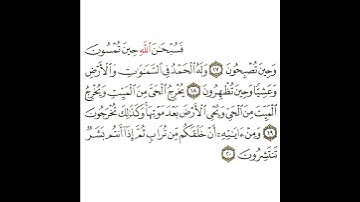 فَسُبْحَـٰنَ ٱللَّهِ حِينَ تُمْسُونَ
وَحِينَ تُصْبِحُونَ ١٧ وَلَهُ ٱلْحَمْدُ فِى ٱلسَّمَـٰوَٰتِ وَٱلْأَرْضِ
وَعَشِيًّا وَحِينَ تُظْهِرُونَ ١٨ يُخْرِجُ ٱلْحَىَّ مِنَ ٱلْمَيِّتِ وَيُخْرِجُ
ٱلْمَيِّتَ مِنَ ٱلْحَىِّ وَيُحْىِ ٱلْأَرْضَ بَعْدَ مَوْتِهَا ۚ وَكَذَٰلِكَ تُخْرَجُونَ
١٩ وَمِنْ ءَايَـٰتِهِۦٓ أَنْ خَلَقَكُم مِّن تُرَابٍ ثُمَّ إِذَآ أَنتُم بَشَرٌ
تَنتَشِرُونَ ٢٠